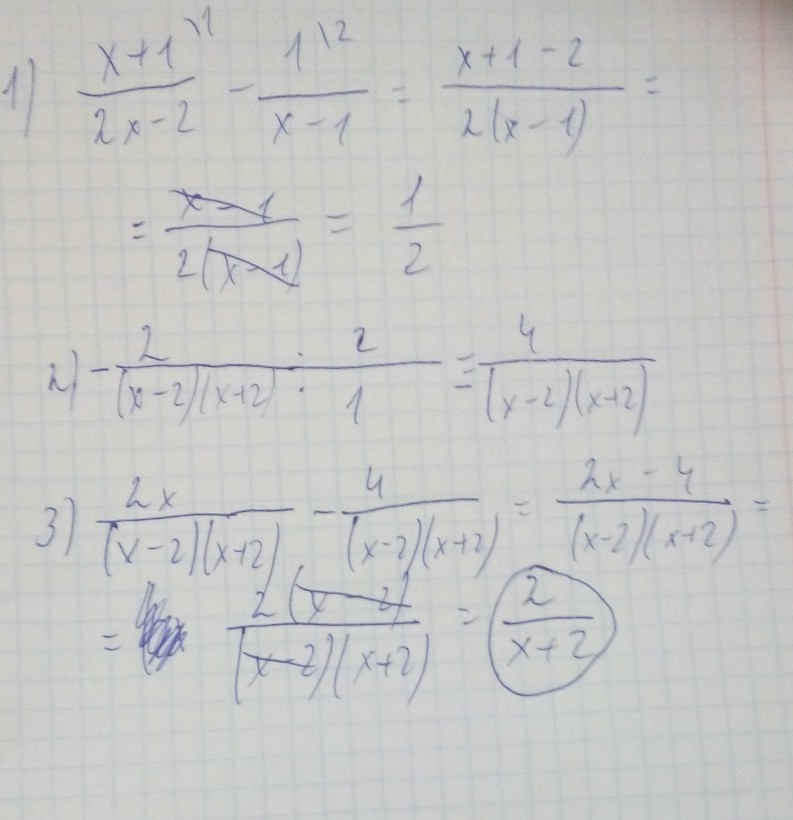 1) \frac{x+1^{\backslash 1}}{2x-2} - \frac{1^{\backslash 2}}{x-1} = \frac{x+1-2}{2(x-1)} =
= \frac{x-1}{2(x-1)} = \frac{1}{2}
2) -\frac{2}{(x-2)(x+2)} : \frac{2}{1} = \frac{4}{(x-2)(x+2)}
3) \frac{2x}{(x-2)(x+2)} - \frac{4}{(x-2)(x+2)} = \frac{2x-4}{(x-2)(x+2)} =
= \frac{2(x-2)}{(x-2)(x+2)} = \frac{2}{x+2}